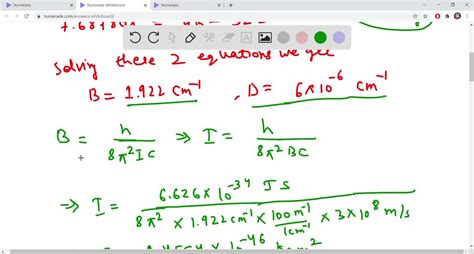 Numerade
Numerade Whiteboard
Numerade
numerade.com/answers/whiteboard/
solving these 2 equations we get
B = 1.922 cm⁻¹ , D = 6×10⁻⁶ cm⁻¹
B = h / 8π²IC ⇒ I = h / 8π²BC
⇒ I = 6.626×10⁻³⁴ JS / 8π² × 1.922 cm⁻¹ × 100m⁻¹ / 1cm⁻¹ × 3×10⁸ m/s